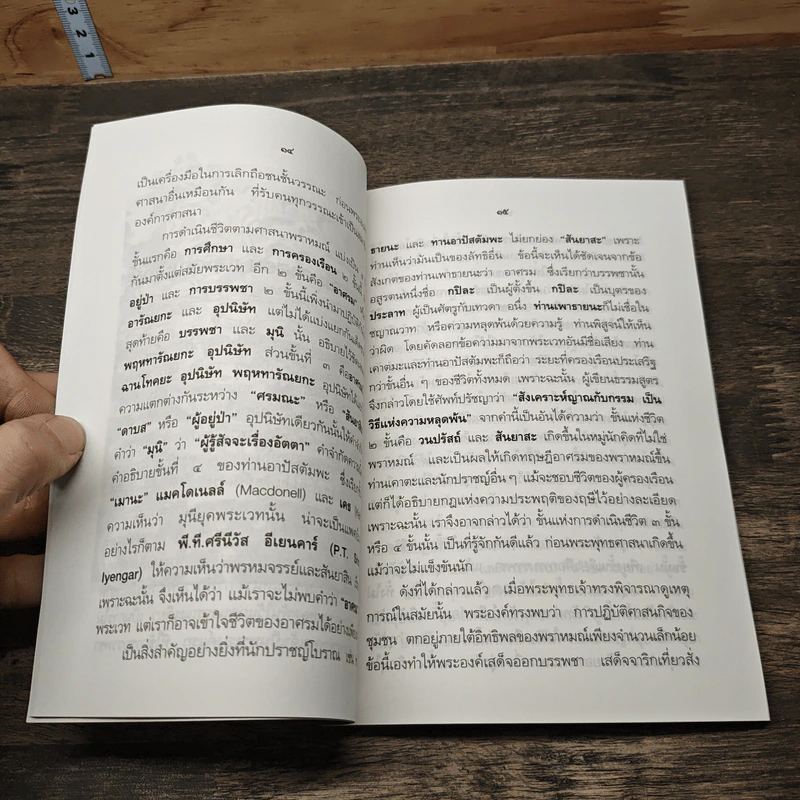 3
2
1
๑๔
เป็นเครื่องมือในการเลิกถือชนชั้นวรรณะ ก่อนพระ
ศาสนาอื่นเหมือนกัน ที่รับคนทุกวรรณะเข้าเป็น
องค์การศาสนา
การดำเนินชีวิตตามศาสนาพราหมณ์ แบ่งเป็น
ขั้นแรกคือ การศึกษา และ การครองเรือน ๒ ขั้นนี้
กันมาตั้งแต่สมัยพระเวท อีก ๒ ขั้นคือ "อาศรม"
อยู่ป่า และ การบรรพชา ๒ ขั้นนี้เพิ่งนำมา
อารัณยกะ และ อุปนิษัท แต่ไม่ได้แบ่งแยกกัน
สุดท้ายคือ บรรพชา และ มุนี นั้น อธิบายไว้
พฤหทารัณยกะ อุปนิษัท ส่วนขั้นที่ ๓ คือ
ฉานโทคยะ อุปนิษัท พฤหทารัณยกะ อุปนิษัทได้
ความแตกต่างกันระหว่าง "ศรมณะ" หรือ
"ดาบส" หรือ "ผู้อยู่ป่า" อุปนิษัทเดียวกันนั้นให้คำ
คำว่า "มุนี" ว่า "ผู้รู้สัจจะเรื่องอัตตา" คำจำกัดความ
คำอธิบายขั้นที่ ๔ ของท่านอาปัสตัมพะ ซึ่งเรียก
"เมานะ" แมคโดเนลล์ (Macdonell) และ เคธ
ความเห็นว่า มุนียุคพระเวทนั้น น่าจะเป็นแพ
อย่างไรก็ตาม พี.ที.ศรีนีวัส อีเยนคาร์ (P.T.
Iyengar) ให้ความเห็นว่าพรหมจรรย์และสันยาสิน
เพราะฉะนั้น จึงเห็นได้ว่า แม้เราจะไม่พบคำว่า
พระเวท แต่เราก็อาจเข้าใจชีวิตของอาศรมได้อย่าง
เป็นสิ่งสำคัญอย่างยิ่งที่นักปราชญ์โบราณ เช่น
๑๕
ธายนะ และ ท่านอาปัสตัมพะ ไม่ยกย่อง "สันยาสะ" เพราะ
ท่านเห็นว่ามันเป็นของลัทธิอื่น ข้อนี้จะเห็นได้ชัดเจนจากข้อ
สังเกตของท่านเพาธายนะว่า อาศรม ซึ่งเรียกว่าบรรพชานั้น
อสูรตนหนึ่งชื่อ กปิละ เป็นผู้ตั้งขึ้น กปิละ เป็นบุตรของ
ประลาท ผู้เป็นศัตรูกับเทวดา อนึ่ง ท่านเพาธายนะก็ไม่เชื่อใน
ชญาณวาท หรือความหลุดพ้นด้วยความรู้ ท่านพิสูจน์ให้เห็น
ว่าผิด โดยคัดลอกข้อความมาจากพระเวทอันมีชื่อเสียง ท่าน
เคาตมะและท่านอาปัสตัมพะก็ถือว่า ระยะที่ครองเรือนประเสริฐ
กว่าขั้นอื่น ๆ ของชีวิตทั้งหมด เพราะฉะนั้น ผู้เขียนธรรมสูตร
จึงกล่าวโดยใช้ศัพท์ปรัชญาว่า "สังเคราะห์ญาณกับกรรม เป็น
วิธีแห่งความหลุดพ้น" จากคำนี้เป็นอันได้ความว่า ขั้นแห่งชีวิต
๒ ขั้นคือ วนปรัสถ์ และ สันยาสะ เกิดขึ้นในหมู่นักคิดที่ไม่ใช่
พราหมณ์ และเป็นผลให้เกิดทฤษฎีอาศรมของพราหมณ์ขึ้น
ท่านเคาตะและนักปราชญ์อื่น ๆ แม้จะชอบชีวิตของผู้ครองเรือน
แต่ก็ได้อธิบายกฎแห่งความประพฤติของฤษีไว้อย่างละเอียด
เพราะฉะนั้น เราจึงอาจกล่าวได้ว่า ขั้นแห่งการดำเนินชีวิต ๓ ขั้น
หรือ ๔ ขั้นนั้น เป็นที่รู้จักกันดีแล้ว ก่อนพระพุทธศาสนาเกิดขึ้น
แม้ว่าจะไม่แข็งขันนัก
ดังที่ได้กล่าวแล้ว เมื่อพระพุทธเจ้าทรงพิจารณาดูเหตุ
การณ์ในสมัยนั้น พระองค์ทรงพบว่า การปฏิบัติศาสนกิจของ
ชุมชน ตกอยู่ภายใต้อิทธิพลของพราหมณ์เพียงจำนวนเล็กน้อย
ข้อนี้เองทำให้พระองค์เสด็จออกบรรพชา เสด็จจาริกเที่ยวสั่ง